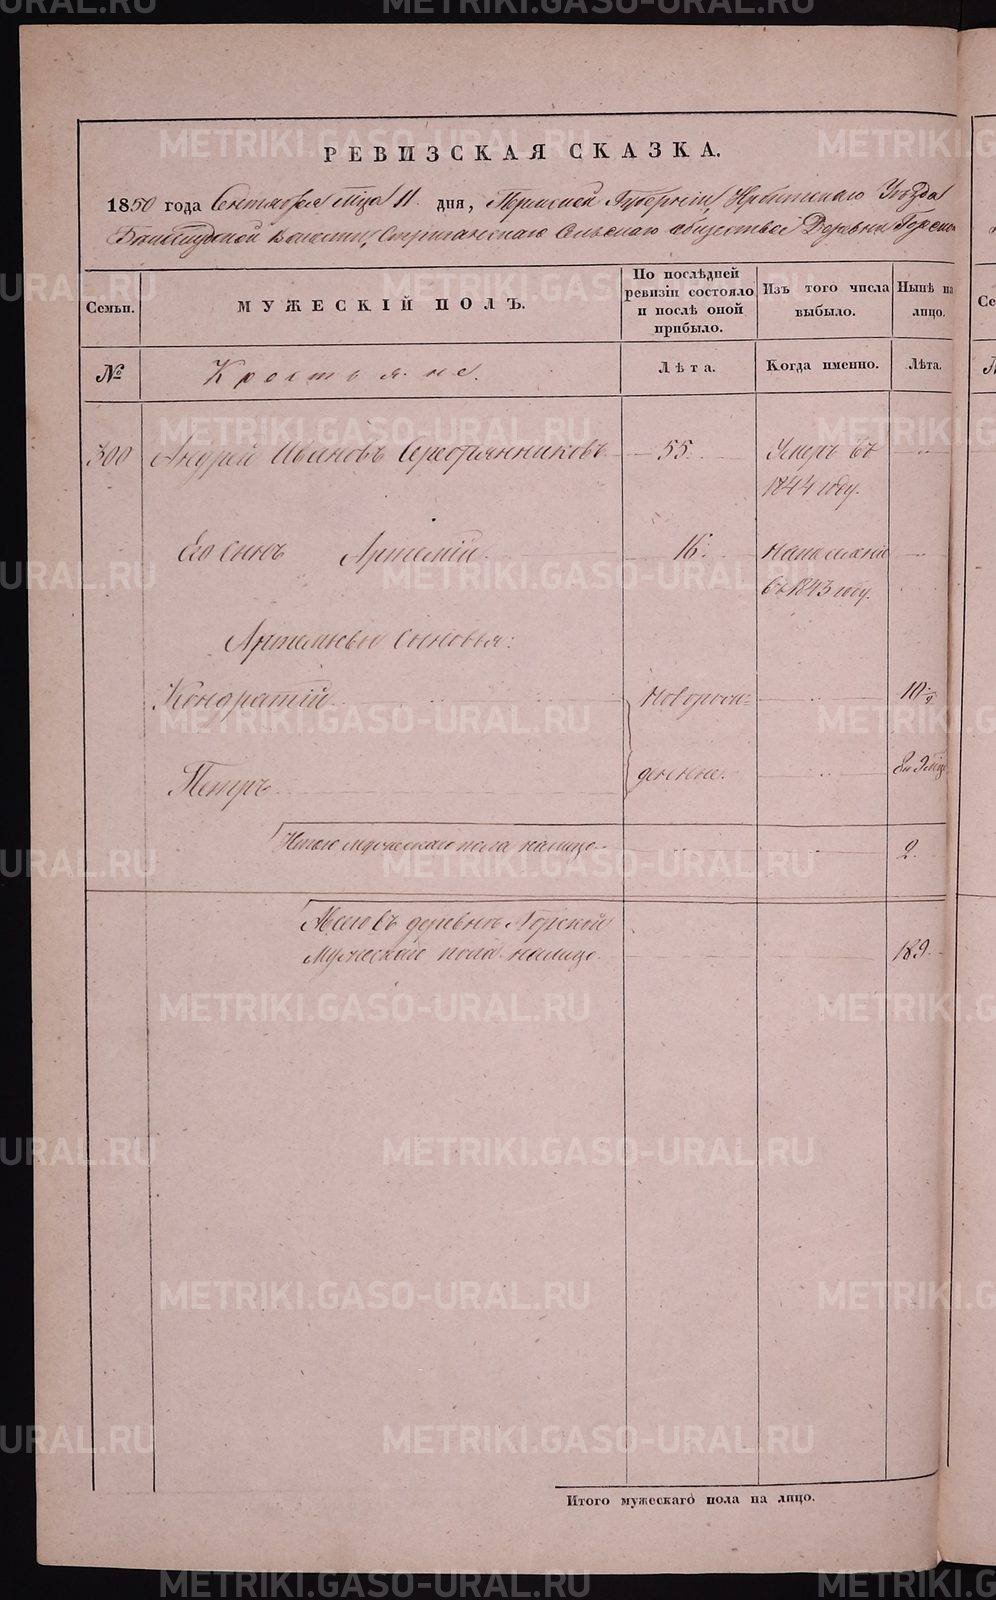 METRIKI.GASO-URAL.RU
РЕВИЗСКАЯ СКАЗКА.
1850 года Сентября мца 11 дня, Пермской Губернiи, Ирбитскаго Уѣзда
Волости, Сельскаго общества Деревни Горской
Семьи.
МУЖЕСКІЙ ПОЛЪ.
По послѣдней ревизіи состояло и послѣ оной прибыло.
Изъ того числа выбыло.
Нынѣ на лицо.
№
Крестьяне.
Лѣта.
Когда именно.
Лѣта.
300 Андрей Ивановъ Серебрянниковъ 55. Умеръ въ
1844 году.
Его сынъ Артемiй 16.
въ 1843 году.
Артемьевы сыновья:
Кондратiй новорож= 10
Петръ денные.
Итого мужескаго пола налицо 2.
Всего въ деревнѣ Горской
Мужескаго пола налицо 189.
Итого мужескаго пола на лицо.